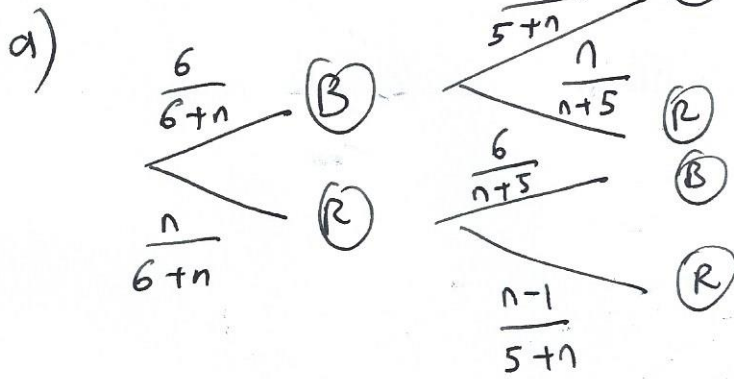 a)
6/(6+n) B
n/(6+n) R
5+n
n/(n+5) R
6/(n+5) B
(n-1)/(5+n) R